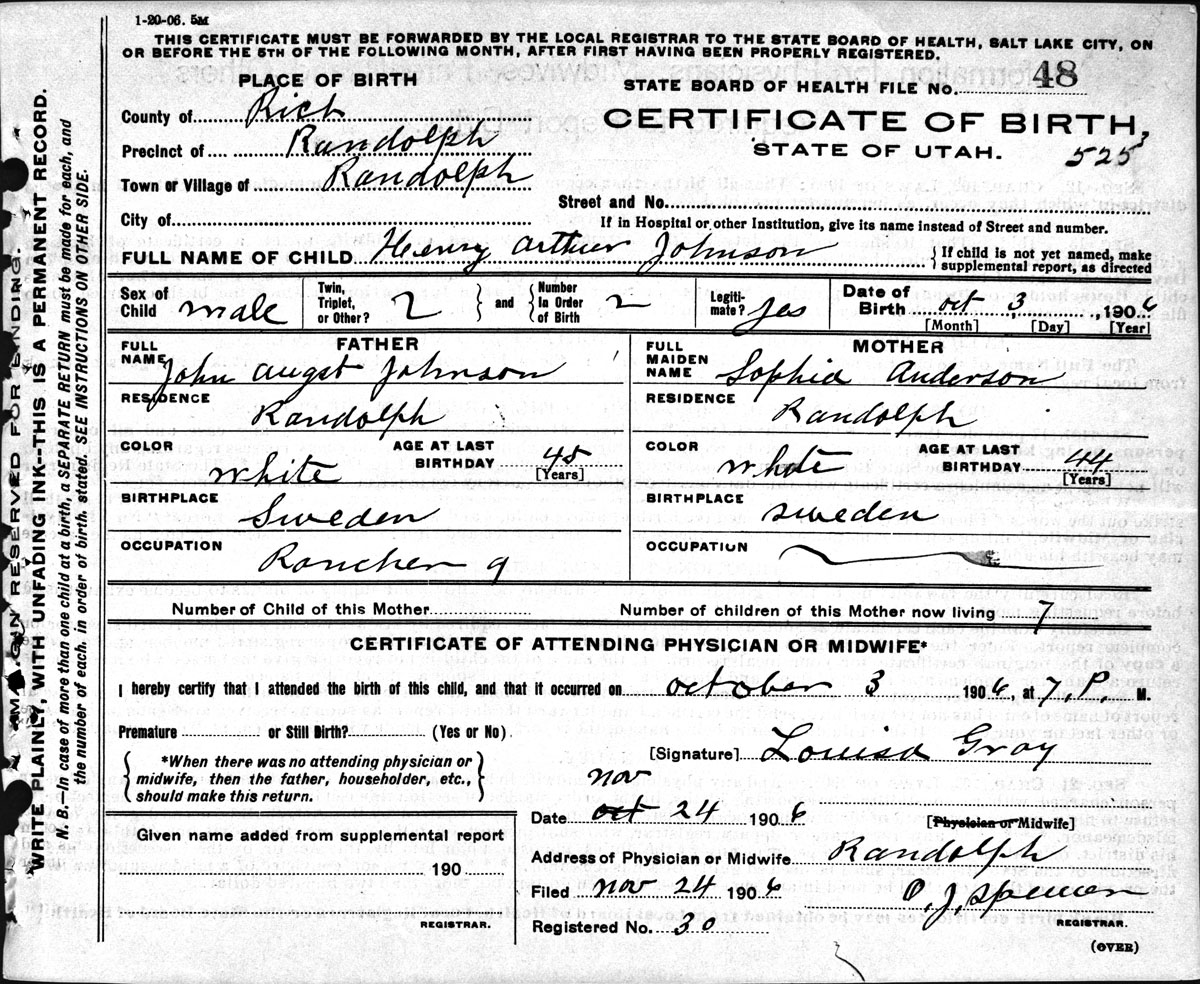 1-20-06. 5M
THIS CERTIFICATE MUST BE FORWARDED BY THE LOCAL REGISTRAR TO THE STATE BOARD OF HEALTH, SALT LAKE CITY, ON
OR BEFORE THE 5TH OF THE FOLLOWING MONTH, AFTER FIRST HAVING BEEN PROPERLY REGISTERED.
PLACE OF BIRTH
STATE BOARD OF HEALTH FILE No. 48
County of Rich
CERTIFICATE OF BIRTH,
Precinct of Randolph
STATE OF UTAH. 525
Town or Village of Randolph
Street and No.
City of
If in Hospital or other Institution, give its name instead of Street and number.
FULL NAME OF CHILD Henry Arthur Johnson { If child is not yet named, make
supplemental report, as directed
Sex of Child male Twin, Triplet, or Other? 2 } and { Number In Order of Birth 2 Legiti- mate? yes Date of Birth oct 3, 1906
[Month] [Day] [Year]
FATHER
FULL NAME John Augst Johnson
RESIDENCE
Randolph
COLOR White AGE AT LAST BIRTHDAY 45 [Years]
BIRTHPLACE
Sweden
OCCUPATION
Rancher 9
MOTHER
FULL MAIDEN NAME Sophia Anderson
RESIDENCE
Randolph
COLOR White AGE AT LAST BIRTHDAY 44 [Years]
BIRTHPLACE
Sweden
OCCUPATION
Number of Child of this Mother
Number of children of this Mother now living 7
CERTIFICATE OF ATTENDING PHYSICIAN OR MIDWIFE*
I hereby certify that I attended the birth of this child, and that it occurred on october 3 1906, at 7, P. M.
Premature or Still Birth? (Yes or No).
[Signature] Louisa Gray
{ *When there was no attending physician or
midwife, then the father, householder, etc.,
should make this return. }
nov
Date oct 24 1906
[Physician or Midwife]
Given name added from supplemental report
190
REGISTRAR.
Address of Physician or Midwife Randolph
Filed nov 24 1906 O. J. Spencer
REGISTRAR.
Registered No. 30
(OVER)
MARGIN RESERVED FOR BINDING
*WRITE PLAINLY, WITH UNFADING INK--THIS IS A PERMANENT RECORD.
N. B.—In case of more than one child at a birth, a SEPARATE RETURN must be made for each, and
the number of each, in order of birth, stated. SEE INSTRUCTIONS ON OTHER SIDE.